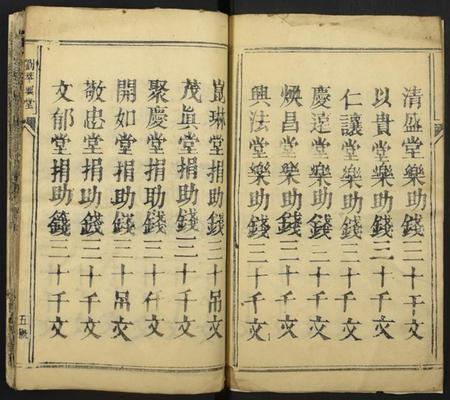 清盛堂樂助錢二十千文
以貴堂樂助錢三十千文
仁讓堂樂助錢二十千文
慶達堂樂助錢二十千文
煥昌堂樂助錢三十千文
興法堂樂助錢三十千文
崑琳堂捐助錢三十吊文
茂眞堂捐助錢二十千文
聚慶堂捐助錢三十仟文
開如堂捐助錢三十吊文
敬忠堂捐助錢二十千文
文郁堂捐助錢三十千文
堂
五